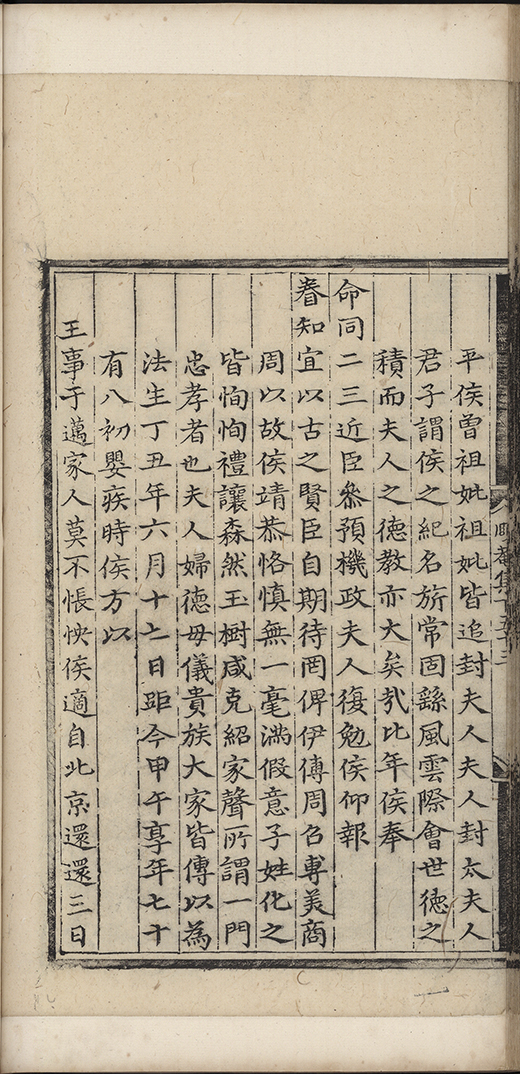 平侯曾祖妣祖妣皆追封夫人夫人封太夫人
君子謂侯之紀名旂常固繇風雲際會世德之
積而夫人之德教亦大矣哉比年侯奉
命同二三近臣叅預機政夫人復勉侯仰報
眷知宜以古之賢臣自期待罔俾伊傅周召專美商
周以故侯靖恭恪慎無一毫滿假意子姓化之
皆恂恂禮讓森然玉樹咸克紹家聲所謂一門
忠孝者也夫人婦德母儀貴族大家皆傳以為
法生丁丑年六月十七日距今甲午享年七十
有八初嬰疾時侯方以
王事于邁家人莫不悵怏侯適自北京還還三日